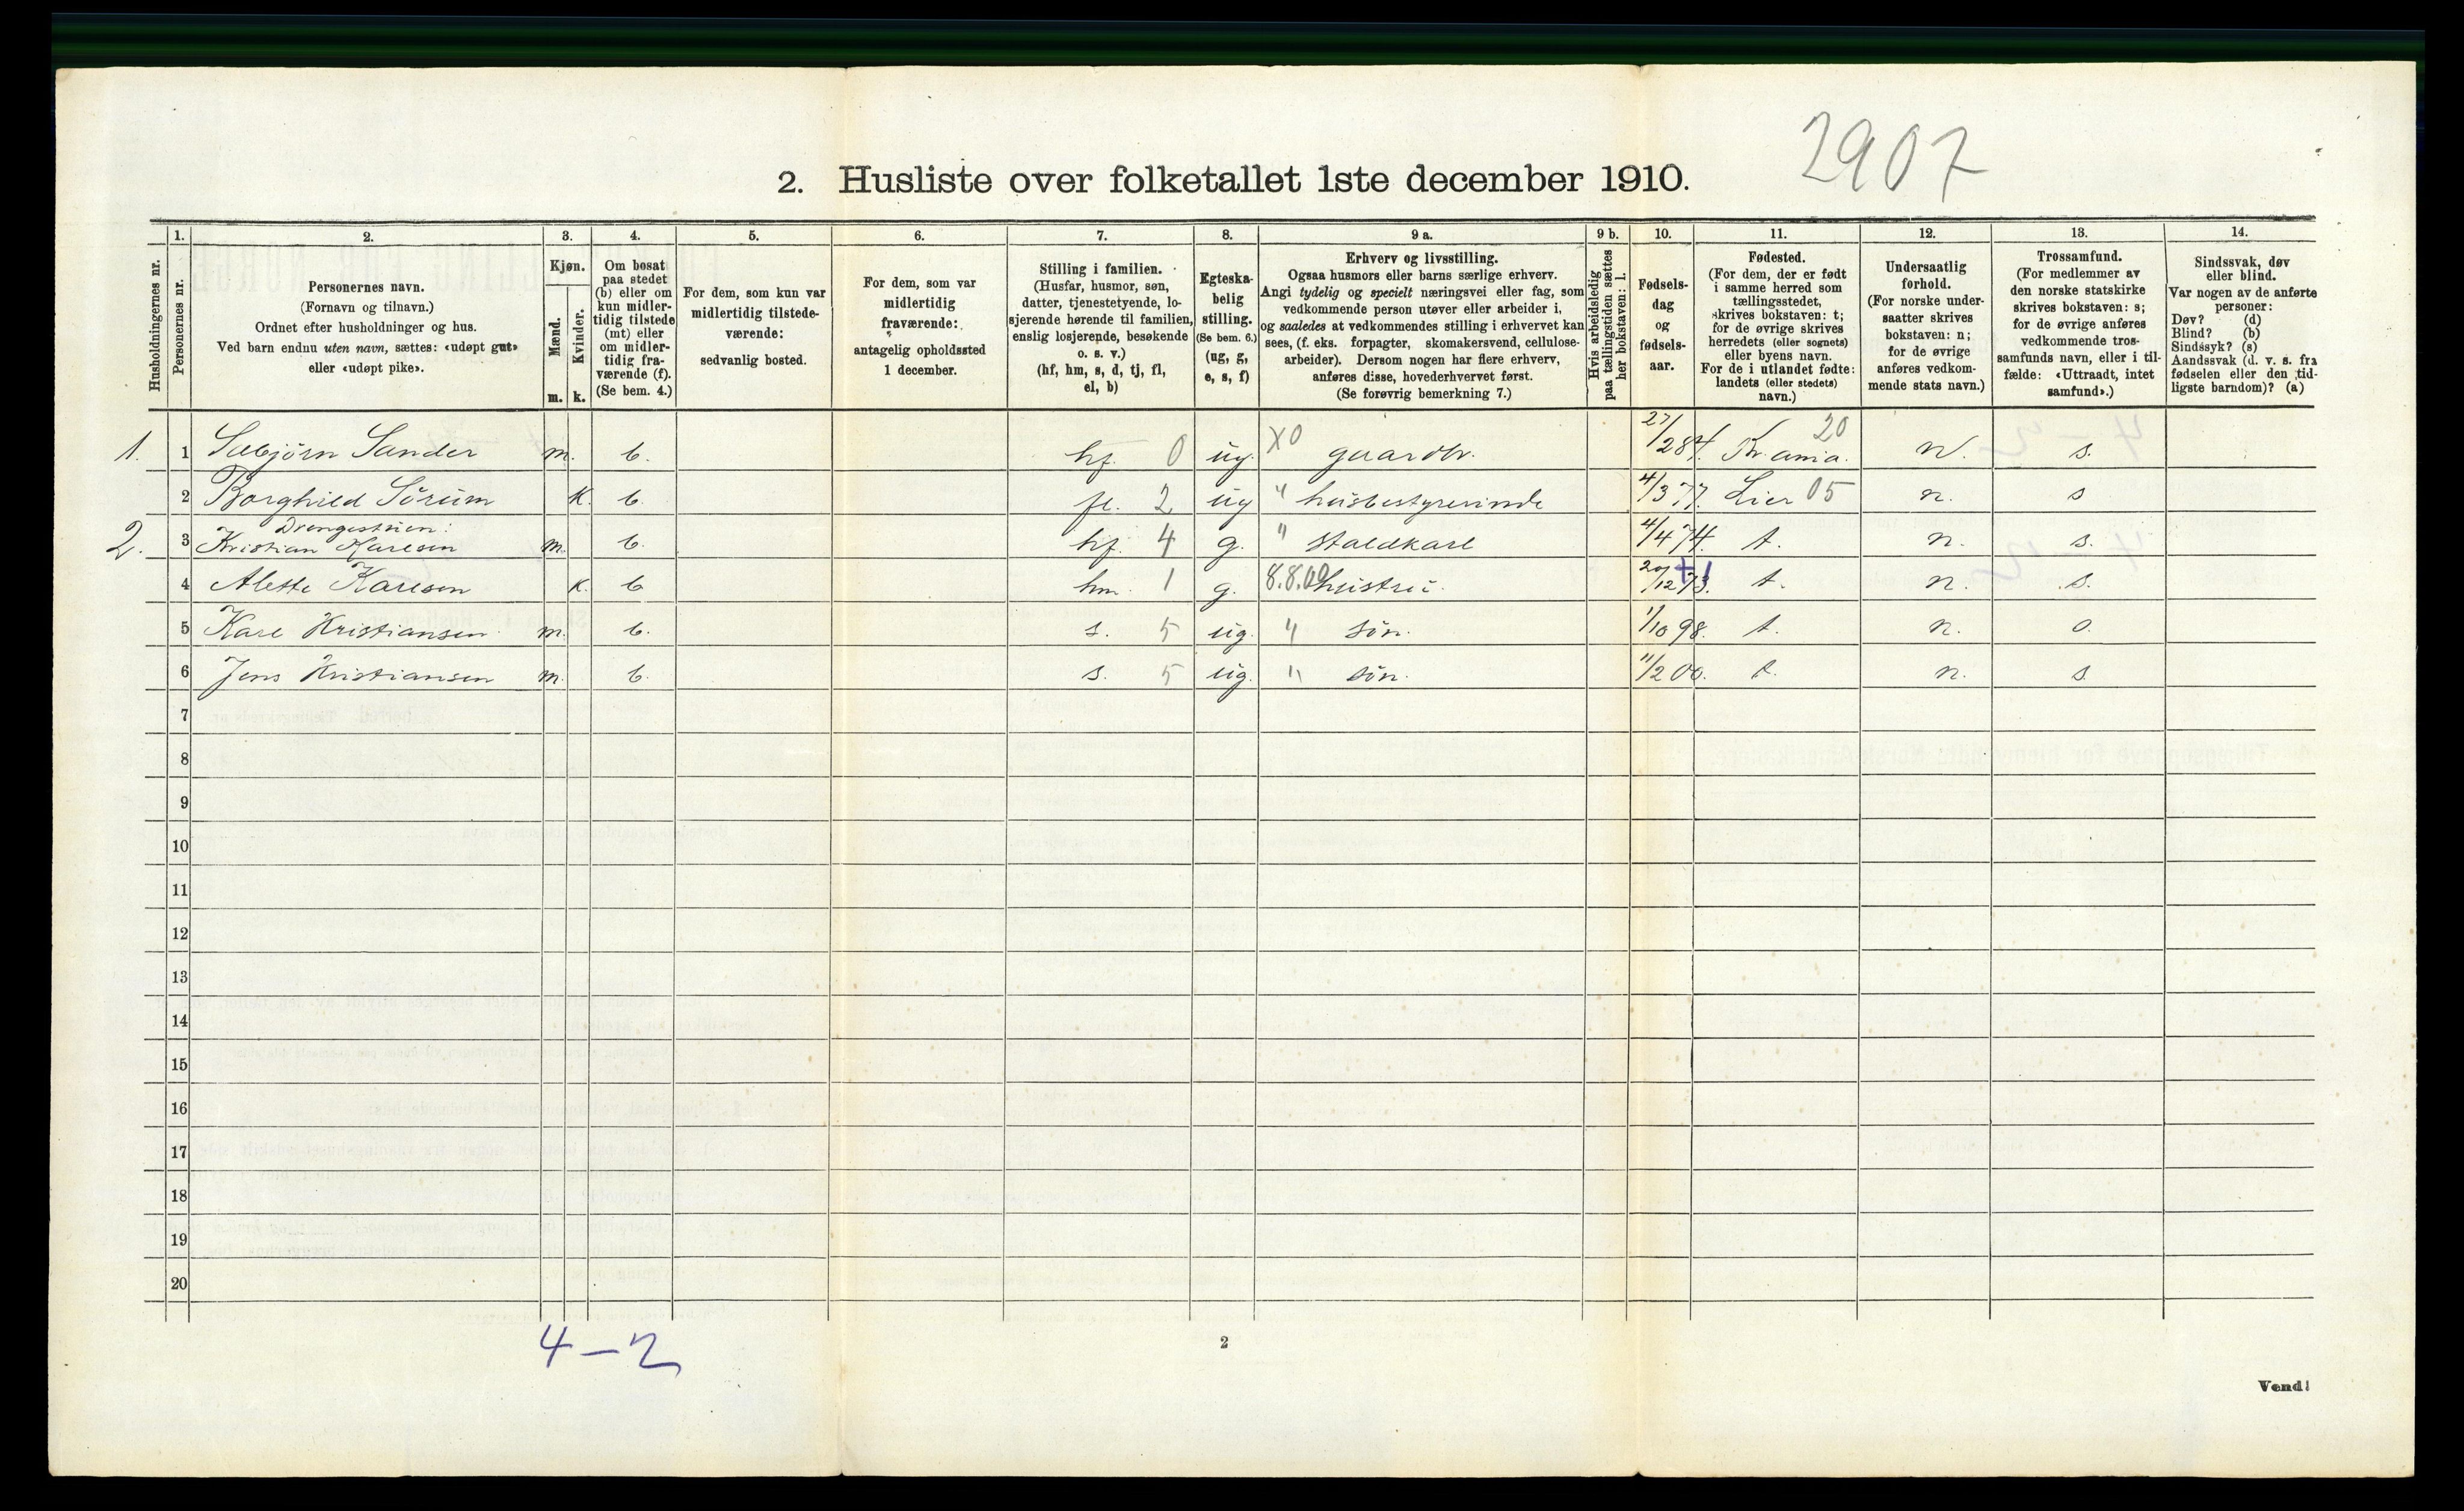 2907
2. Husliste over folketallet 1ste december 1910.
Husholdningernes nr.
1.
Personernes nr.
2.
Personernes navn.
(Fornavn og tilnavn.)
Ordnet efter husholdninger og hus.
Ved barn endnu uten navn, sættes: «udøpt gut»
eller «udøpt pike».
3.
Kjøn.
Mænd.
Kvinder.
m. k.
4.
Om bosat
paa stedet
(b) eller om
kun midler-
tidig tilstede
(mt) eller
om midler-
tidig fra-
værende (f).
(Se bem. 4.)
5.
For dem, som kun var
midlertidig tilstede-
værende:
sedvanlig bosted.
6.
For dem, som var
midlertidig
fraværende:
antagelig opholdssted
1 december.
7.
Stilling i familien.
(Husfar, husmor, søn,
datter, tjenestetyende, lo-
sjerende hørende til familien,
enslig losjerende, besøkende
o. s. v.)
(hf, hm, s, d, tj, fl,
el, b)
8.
Egteska-
belig
stilling.
(Se bem. 6.)
(ug, g,
e, s, f)
9 a.
Erhverv og livsstilling.
Ogsaa husmors eller barns særlige erhverv.
Angi tydelig og specielt næringsvei eller fag, som
vedkommende person utøver eller arbeider i,
og saaledes at vedkommendes stilling i erhvervet kan
sees, (f. eks. forpagter, skomakersvend, cellulose-
arbeider). Dersom nogen har flere erhverv,
anføres disse, hovederhvervet først.
(Se forøvrig bemerkning 7.)
9 b.
Hvis arbeidsledig
paa tællingstiden sættes
her bokstaven: l.
10.
Fødsels-
dag
og
fødsels-
aar.
11.
Fødested.
(For dem, der er født
i samme herred som
tællingsstedet,
skrives bokstaven: t;
for de øvrige skrives
herredets (eller sognets)
eller byens navn.
For de i utlandet fødte:
landets (eller stedets)
navn.)
12.
Undersaatlig
forhold.
(For norske under-
saatter skrives
bokstaven: n;
for de øvrige
anføres vedkom-
mende stats navn.)
13.
Trossamfund.
(For medlemmer av
den norske statskirke
skrives bokstaven: s;
for de øvrige anføres
vedkommende tros-
samfunds navn, eller i til-
fælde: «Uttraadt, intet
samfund».)
14.
Sindssvak, døv
eller blind.
Var nogen av de anførte
personer:
Døv? (d)
Blind? (b)
Sindssyk? (s)
Aandssvak (d. v. s. fra
fødselen eller den tid-
ligste barndom)? (a)
1. 1 Sæbjörn Sander m. b. hf. 0 ug. X0 gaardbr. 27/2 84. Kr.ania. 20 n. s.
2 Borghild Sörum K. b. fl. 2 ug " husbestyrerinde 4/3 77. Lier 05 n. s
Drengestuen:
2. 3 Kristian Karlsen m. b. hf. 4 g. " staldkarl 4/4 74. t. n. s.
4 Alette Karlsen K. b hm. 1 g. 8.8.00 hustru. 20/12 73. t. n. s.
5 Karl Kristiansen m. b. s. 5 ug. " sön. 1/10 98. t. n. s.
6 Jens Kristiansen m. b. s. 5 ug. " sön. 11/2 00. t. n. s
7
8
9
10
11
12
13
14
15
16
17
18
19
20
4-2
2
Vend!